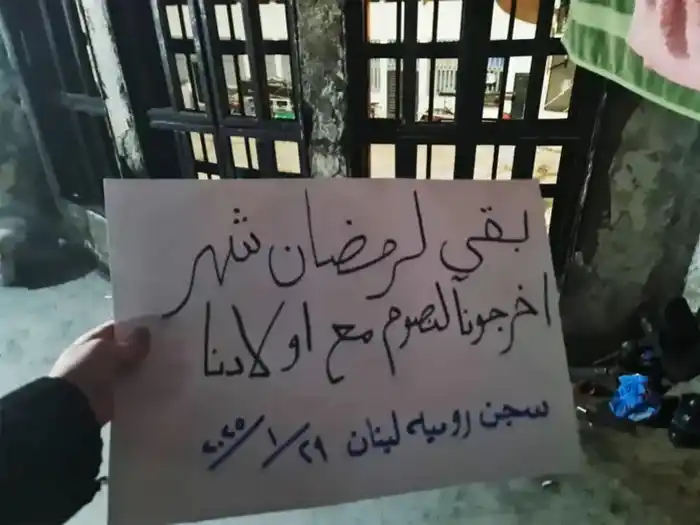 بقي لرمضان شهر
اخرجونا لنصوم مع اولادنا
سجن روميه لبنان ٢٩/١/٢٠٢٥